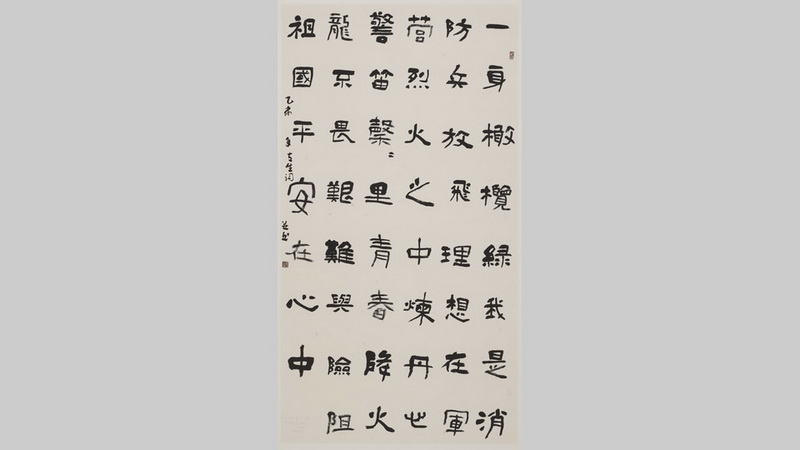 一身橄欖綠我是消
防兵放飛理想在軍
营烈火之中煉丹心
警笛聲〻里青春降火
龍不畏艱難與險阻
祖國平安在心中
乙未